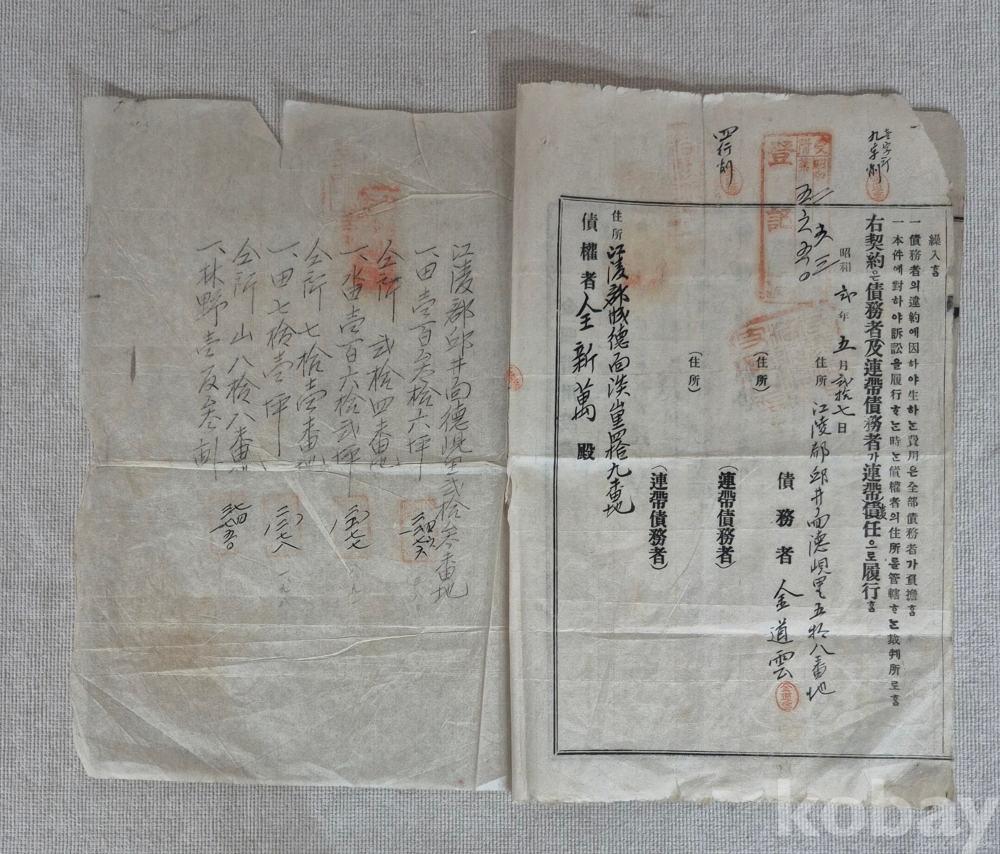 九字削
四行削
登記
繰入홈
一 債務者의違約에因하야生하는費用은全部債務者가負擔홈
一 本件에對하야訴訟을履行하는時는債權者의住所를管轄하는裁判所로홈
右契約은債務者及連帶債務者가連帶責任으로履行홈
昭和 貳年 五月 貳拾七日
住所 江陵郡邱井面德峴里五拾八番地
債務者 金道雲
(住所)
(連帶債務者)
(住所)
(連帶債務者)
住所 江陵郡城德面淡山里四拾九番地
債權者 全新萬 殿
江陵郡邱井面德峴里貳拾參番地
一、田壹百參拾六坪
仝所 貳拾四番地
一、畓壹百六拾貳坪
仝所七拾壹番地
一、田七拾壹坪
仝所 山八拾八番地
一、林野壹反參畝
kobay